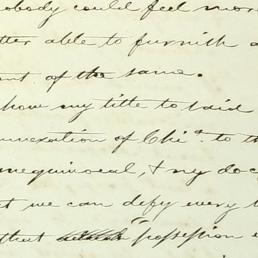 nobody could feel mor
tter able to furnish a
nt of the same.
how my title to said
neration of Chi^a. to th
nequivocal, & my doc
t we can defy every t
that possession e